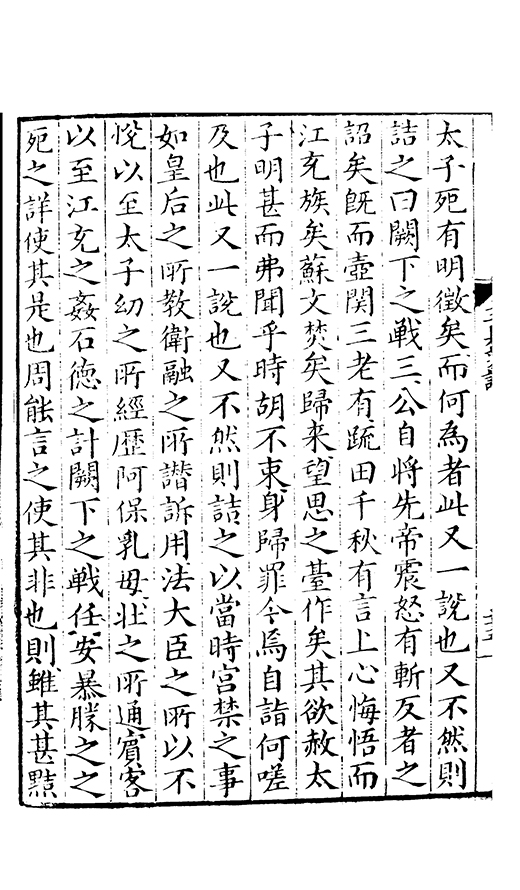 太子死有明徵矣而何為者此又一說也又不然則
詰之曰闕下之戰三公自將先帝震怒有斬反者之
詔矣旣而壺関三老有䟽田千秋有言上心悔悟而
江充族矣蘇文焚矣歸来望思之臺作矣其欲赦太
子明甚而弗聞乎時胡不束身歸罪今焉自詣何嗟
及也此又一說也又不然則詰之以當時宮禁之事
如皇后之所教衛融之所譖訴用法大臣之所以不
悅以至太子幼之所經歷阿保乳母壯之所通賓客
以至江充之姦石德之計闕下之戰任安暴勝之之
死之詳使其是也周能言之使其非也則雖其甚黠